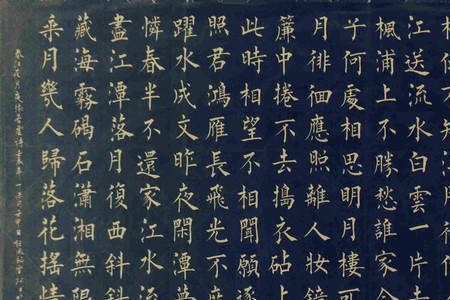 似不知江月待何
江送流水白雲一片去
楓浦上不勝愁誰家今
子何處相思明月樓可
月徘徊應照離人妝鏡
簾中捲不去擣衣砧上
此時相望不相聞願逐
照君鴻雁長飛光不度
躍水成文昨夜閑潭夢
憐春半不還家江水流
盡江潭落月復西斜斜
藏海霧碣石瀟湘無限
乘月幾人歸落花搖情
春江花月夜張若虛詩